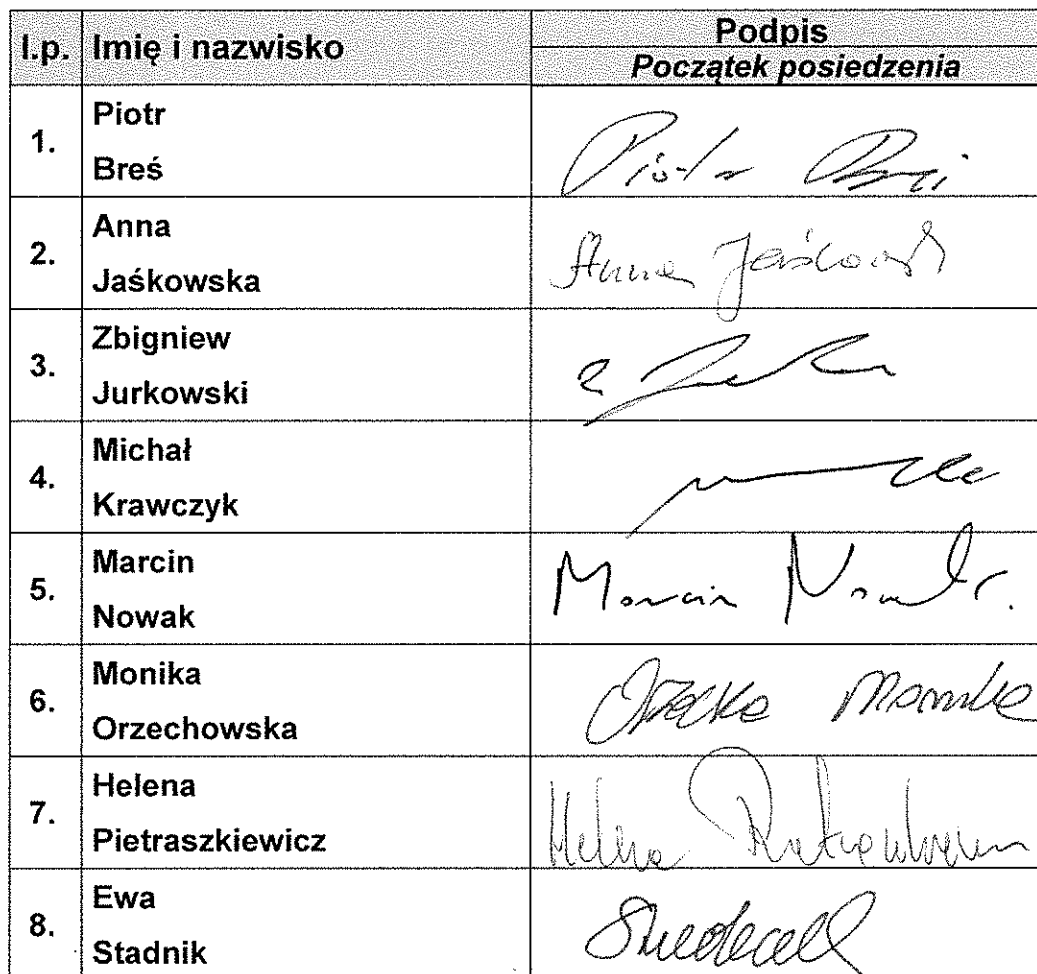 l.p. Imię i nazwisko Podpis
Początek posiedzenia
1. Piotr
Breś
Piotr
2. Anna
Jaśkowska
Anna Jaśkowsk
3. Zbigniew
Jurkowski
4. Michał
Krawczyk
5. Marcin
Nowak
Marcin Nowak
6. Monika
Orzechowska
Monika
7. Helena
Pietraszkiewicz
Helena
8. Ewa
Stadnik